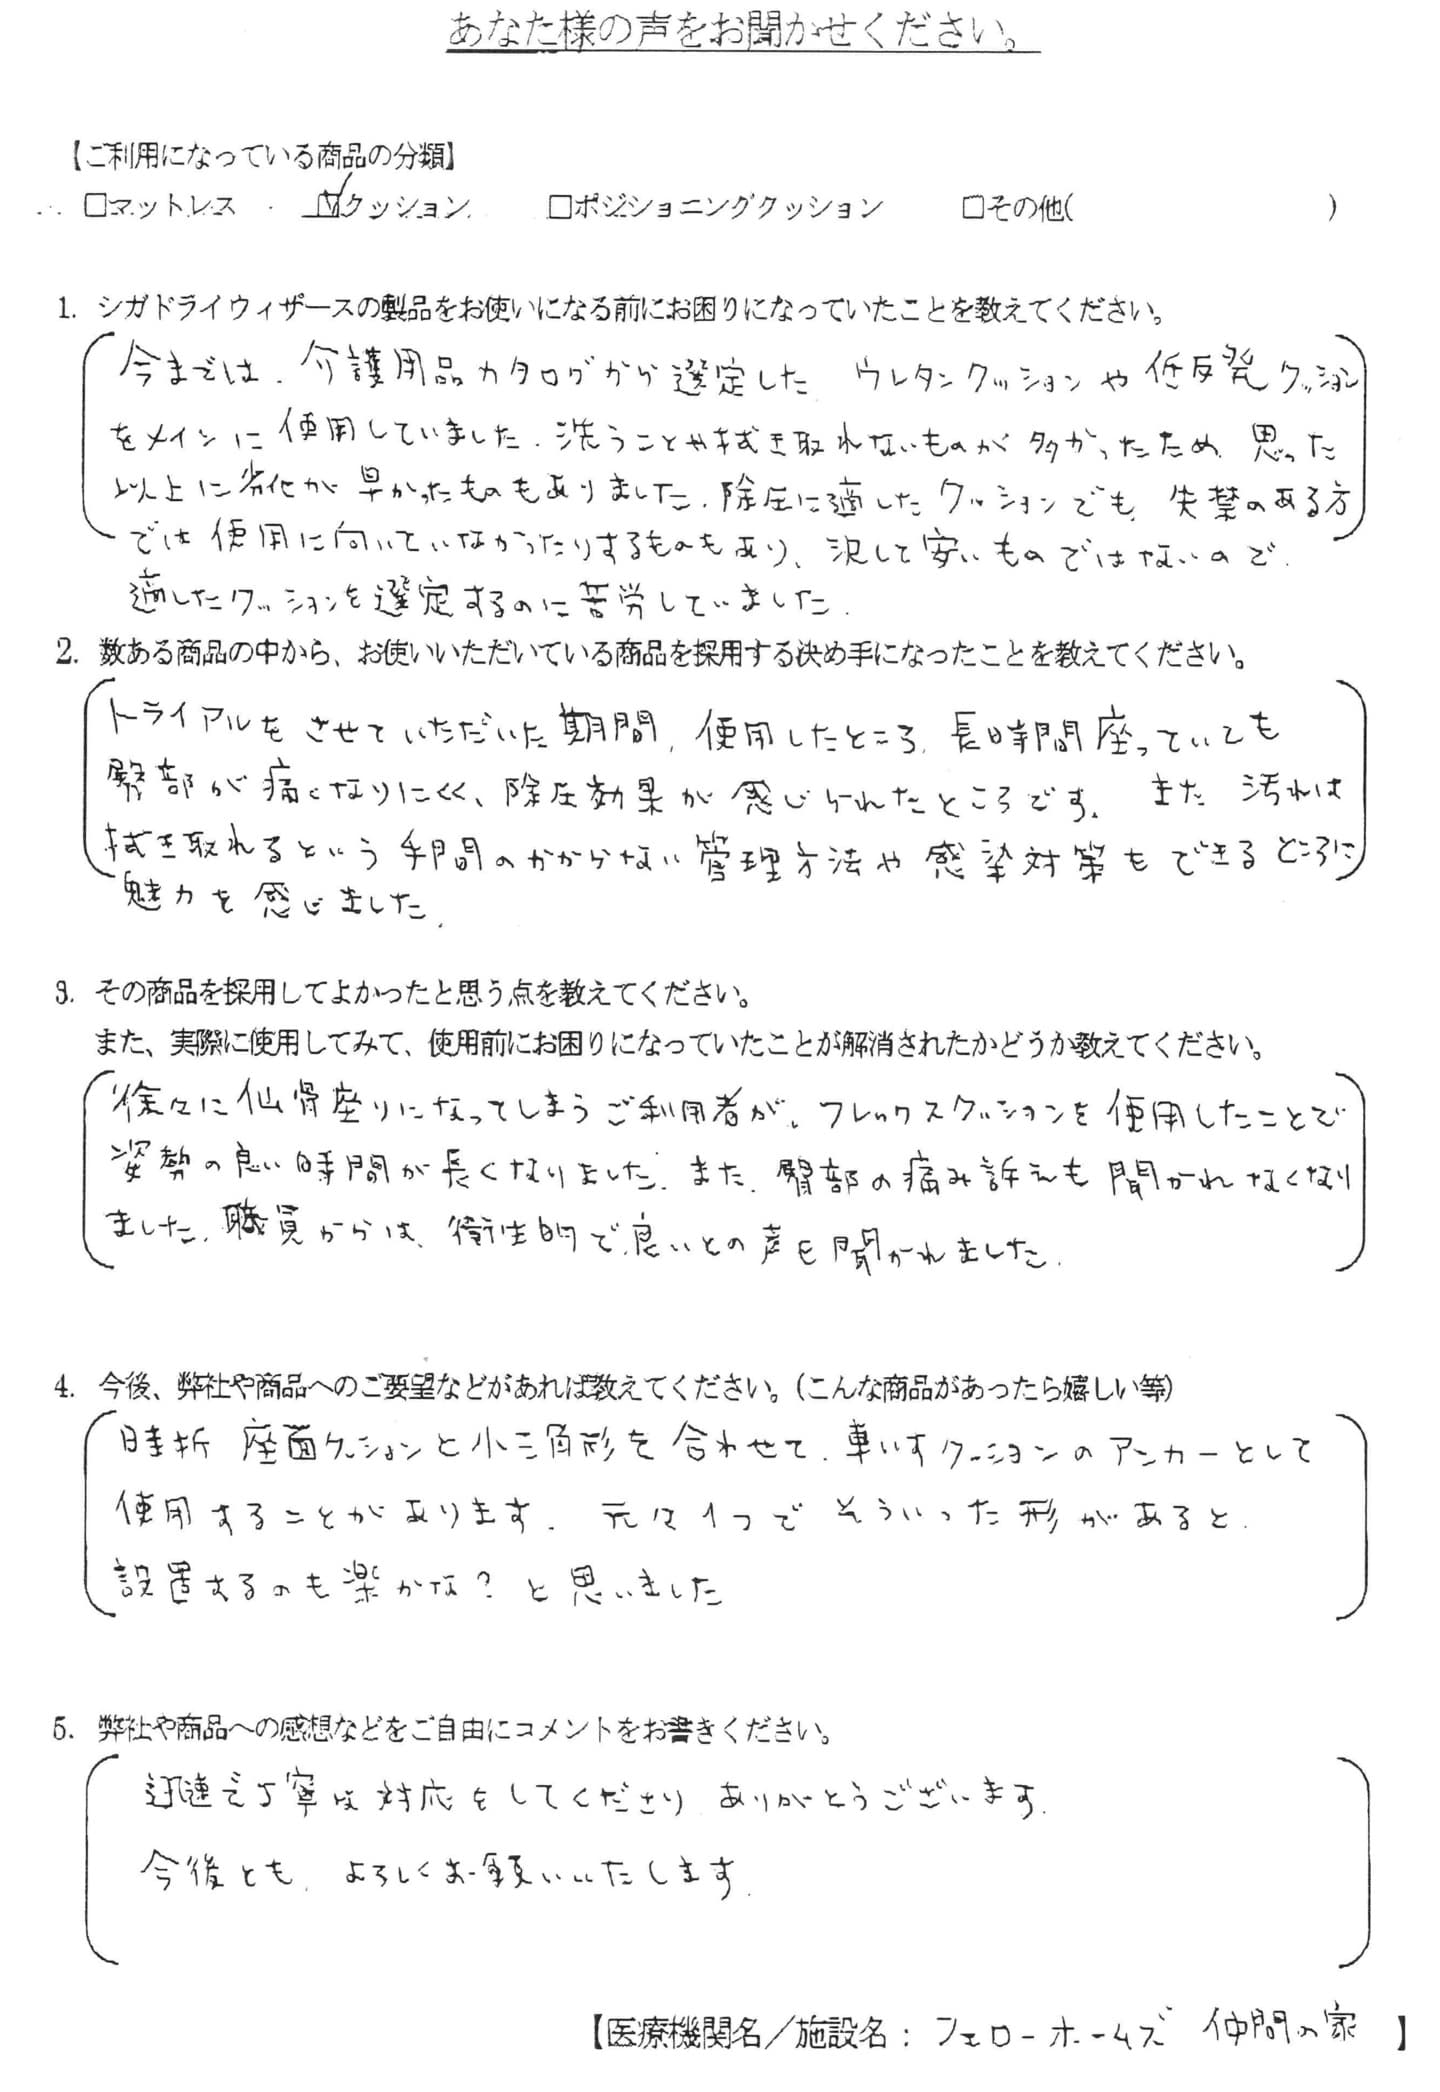 あなた様の声をお聞かせください。
【ご利用になっている商品の分類】
□マットレス ☑クッション □ポジショニングクッション □その他( )
1. シガドライウィザースの製品をお使いになる前にお困りになっていたことを教えてください。
今までは、介護用品カタログから選定した ウレタンクッションや低反発クッション
をメインに使用していました。洗うことや拭き取れないものが多かったため、思った
以上に劣化が早かったものもありました。除圧に適したクッションでも、失禁のある方
では使用に向いていなかったりするものもあり、決して安いものではないので、
適したクッションを選定するのに苦労していました。
2. 数ある商品の中から、お使いいただいている商品を採用する決め手になったことを教えてください。
トライアルをさせていただいた期間、使用したところ、長時間座っていても
臀部が痛くなりにくく、除圧効果が感じられたところです。また汚れは
拭き取れるという手間のかからない管理方法や感染対策もできるところに
魅力を感じました。
3. その商品を採用してよかったと思う点を教えてください。
また、実際に使用してみて、使用前にお困りになっていたことが解消されたかどうか教えてください。
徐々に仙骨座りになってしまうご利用者が、フレックスクッションを使用したことで
姿勢の良い時間が長くなりました。また、臀部の痛み訴えも聞かれなくなり
ました。職員からは、衛生的で良いとの声も聞かれました。
4. 今後、弊社や商品へのご要望などがあれば教えてください。(こんな商品があったら嬉しい等)
時折 座面クッションと小三角形を合わせて、車いすクッションのアンカーとして
使用することがあります。元々1つでそういった形があると、
設置するのも楽かな？と思いました
5. 弊社や商品への感想などをご自由にコメントをお書きください。
迅速で丁寧な対応をしてくださり ありがとうございます。
今後とも、よろしくお願いいたします。
【医療機関名／施設名： フェローホームズ 仲間の家 】